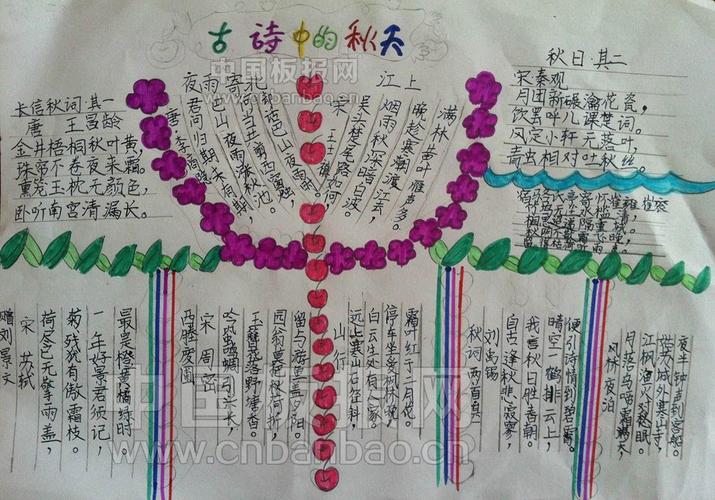 古诗中的秋天
长信秋词·其一
唐 王昌龄
金井梧桐秋叶黄，
珠帘不卷夜来霜。
熏笼玉枕无颜色，
卧听南宫清漏长。
夜雨寄北
唐 李商隐
君问归期未有期，
巴山夜雨涨秋池。
何当共剪西窗烛，
却话巴山夜雨
江上
宋 王士
吴头楚尾路如何，
烟雨秋深暗白波。
晚趁寒潮渡江去，
满林黄叶雁声多。
秋日·其二
宋秦观
月团新碾瀹花瓷，
饮罢呼儿课楚词。
风定小轩无落叶，
青虫相对吐秋丝。
赠刘景文
宋 苏轼
荷尽已无擎雨盖，
菊残犹有傲霜枝。
一年好景君须记，
最是橙黄橘绿时
西塍废圃
宋 周密
吟蛩鸣蜩引兴长，
玉簪花落野塘香。
园翁莫把秋荷折，
留与游鱼盖夕阳。
山行
远上寒山石径斜，
白云生处有人家。
停车坐爱枫林晚，
霜叶红于二月花。
秋词两首
刘禹锡
自古逢秋悲寂寥，
我言秋日胜春朝。
晴空一鹤排云上，
便引诗情到碧霄。
枫桥夜泊
月落乌啼霜满天
江枫渔火对愁眠
姑苏城外寒山寺，
夜半钟声到客船。
中国板报网
www.cnbanbao.com
中国板报网
www.cnbanbao.cn